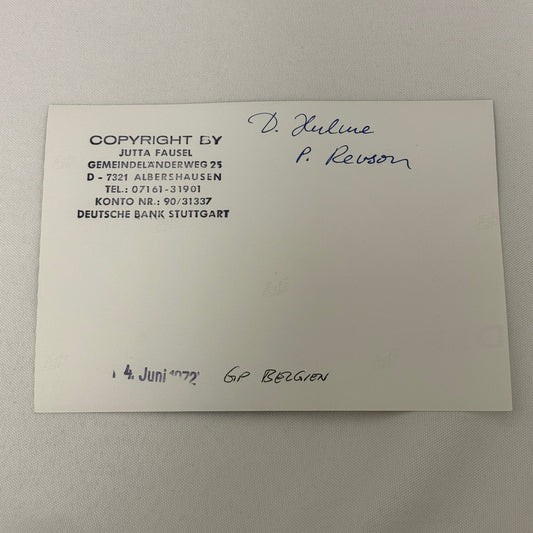 COPYRIGHT BY
JUTTA FAUSEL
GEMEINDELÄNDERWEG 25
D - 7321 ALBERSHAUSEN
TEL.: 07161-31901
KONTO NR.: 90/31337
DEUTSCHE BANK STUTTGART
D. Hulme
P. Revson
4. Juni 1972
GP BELGIEN